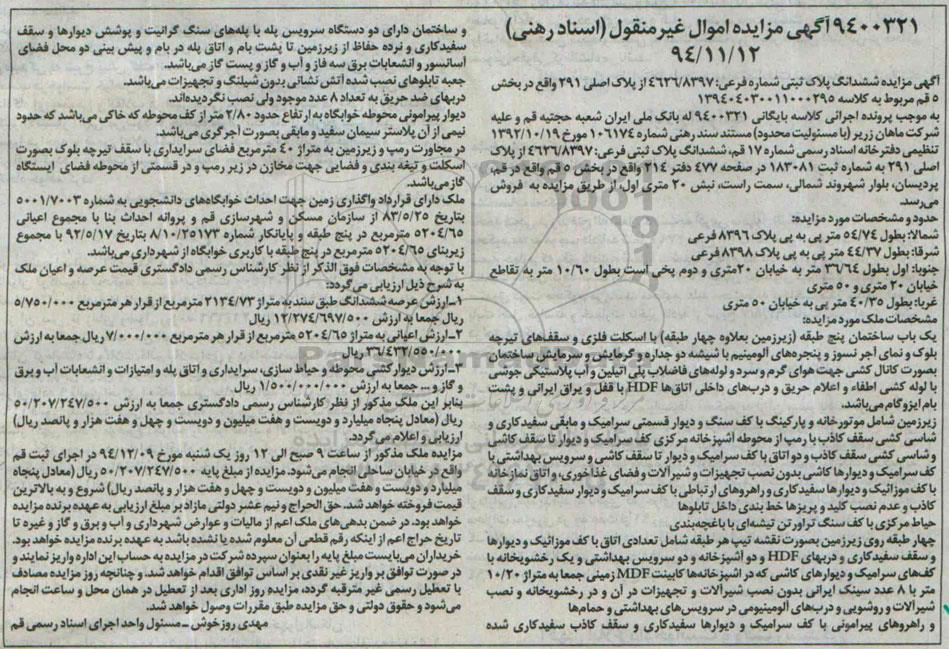 ۹۴۰۰۳۲۱ آگهی مزایده اموال غیر منقول (اسناد رهنی)
۹۴/۱۱/۱۲
آگهی مزایده ششدانگ پلاک ثبتی شماره فرعی: ۴۶۲۶/۸۳۹۷ از پلاک اصلی ۲۹۱ واقع در بخش
۵ قم مربوط به کلاسه ۱۳۹۴۰۴۰۳۰۰۱۱۰۰۰۲۹۵
به موجب پرونده اجرائی کلاسه بایگانی ۹۴۰۰۳۲۱ له بانک ملی ایران شعبه حجتیه قم و علیه
شرکت ماهان زریر (با مسئولیت محدود) مستند سند رهنی شماره ۱۰۶۱۷۴ مورخ ۱۳۹۲/۱۰/۱۹
تنظیمی دفترخانه اسناد رسمی شماره ۱۷ قم، ششدانگ پلاک ثبتی فرعی: ۴۶۲۶/۸۳۹۷ از پلاک
اصلی ۲۹۱ به شماره ثبت ۱۸۳۰۸۱ در صفحه ۴۷۷ دفتر ۲۱۴ واقع در بخش ۵ قم واقع در قم،
پردیسان، بلوار شهروند شمالی، سمت راست، نبش ۲۰ متری اول، از طریق مزایده به فروش
می‌رسد.
حدود و مشخصات مورد مزایده:
شمالا: بطول ۵۴/۷۴ متر پی به پی پلاک ۸۳۹۶ فرعی
شرقا: بطول ۴۴/۳۷ متر پی به پی پلاک ۸۳۹۸ فرعی
جنوبا: اول بطول ۳۶/۶۴ متر به خیابان ۲۰متری و دوم پخی است بطول ۱۰/۶۰ متر به تقاطع
خیابان ۲۰ متری و ۵۰ متری
غربا: بطول ۴۰/۳۵ متر پی به خیابان ۵۰ متری
مشخصات ملک مورد مزایده:
یک باب ساختمان پنج طبقه (زیرزمین بعلاوه چهار طبقه) با اسکلت فلزی و سقف‌های تیرچه
بلوک و نمای آجر نسوز و پنجره‌های آلومینیم با شیشه دو جداره و گرمایش و سرمایش ساختمان
بصورت کانال کشی جهت هوای گرم و سرد و لوله‌های فاضلاب پلی اتیلین و آب پلاستیکی جوشی
با لوله کشی اطفاء و اعلام حریق و درب‌های داخلی اتاق‌ها HDF با قفل و یراق ایرانی و پشت
بام ایزوگام می‌باشد.
زیرزمین شامل موتورخانه و پارکینگ با کف سنگ و دیوار قسمتی سرامیک و مابقی سفیدکاری و
شاسی کشی سقف کاذب با رمپ از محوطه آشپزخانه مرکزی کف سرامیک و دیوار تا سقف کاشی
و شاسی کشی سقف کاذب و دو اتاق با کف سرامیک و دیوار تا سقف کاشی و سرویس بهداشتی با
کف سرامیک و دیوارها کاشی بدون نصب تجهیزات و شیرآلات و فضای غذاخوری، و اتاق نمازخانه
با کف موزائیک و دیوارها سفیدکاری و راهروهای ارتباطی با کف سرامیک و دیوار سفیدکاری و سقف
کاذب و عدم نصب کلید و پریزها خط بندی داخل تابلوها
حیاط مرکزی با کف سنگ تراورتن تیشه‌ای با باغچه‌بندی
چهار طبقه روی زیرزمین بصورت نقشه تیپ هر طبقه شامل تعدادی اتاق با کف موزائیک و دیوارها
و سقف سفیدکاری و دربهای HDF و دو آشپزخانه و دو سرویس بهداشتی و یک رختشویخانه با
کف‌های سرامیک و دیوارهای کاشی که در آشپزخانه‌ها کابینت MDF زمینی جمعا به متراژ ۱۰/۲۰
متر با ۸ عدد سینک ایرانی بدون نصب شیرآلات و تجهیزات در آن و در رختشویخانه و نصب
شیرآلات و روشویی و درب‌های آلومینیومی در سرویس‌های بهداشتی و حمام‌ها
و راهروهای پیرامونی با کف سرامیک و دیوارها سفیدکاری و سقف کاذب سفیدکاری شده
و ساختمان دارای دو دستگاه سرویس پله با پله‌های سنگ گرانیت و پوشش دیوارها و سقف
سفیدکاری و نرده حفاظ از زیرزمین تا پشت بام و اتاق پله در بام و پیش بینی دو محل فضای
آسانسور و انشعابات برق سه فاز و آب و گاز و پست گاز می‌باشد.
جعبه تابلوهای نصب شده آتش نشانی بدون شیلنگ و تجهیزات می‌باشد.
دربهای ضد حریق به تعداد ۸ عدد موجود ولی نصب نگردیده‌اند.
دیوار پیرامونی محوطه خوابگاه به ارتفاع حدود ۲/۸۰ متر از کف محوطه که خاکی می‌باشد که حدود
نیمی از آن پلاستر سیمان سفید و مابقی بصورت آجرگری می‌باشد.
در مجاورت رمپ و زیرزمین به متراژ ۴۰ مترمربع فضای سرایداری با سقف تیرچه بلوک بصورت
اسکلت و تیغه بندی و فضایی جهت مخازن در زیر رمپ و در قسمتی از محوطه فضای ایستگاه
گاز می‌باشد.
ملک دارای قرارداد واگذاری زمین جهت احداث خوابگاه‌های دانشجویی به شماره ۵۰۰۱/۷۰۰۳
بتاریخ ۸۳/۵/۲۵ از سازمان مسکن و شهرسازی قم و پروانه احداث بنا با مجموع اعیانی
۵۲۰۴/۶۵ مترمربع در پنج طبقه و پایانکار شماره ۸/۱۰/۲۵۱۷۳ بتاریخ ۹۲/۵/۱۷ با مجموع
زیربنای ۵۲۰۴/۶۵ مترمربع در پنج طبقه با کاربری خوابگاه از شهرداری می‌باشد.
با توجه به مشخصات فوق الذکر از نظر کارشناس رسمی دادگستری قیمت عرصه و اعیان ملک
به شرح ذیل ارزیابی می‌گردد:
۱ـ ارزش عرصه ششدانگ طبق سند به متراژ ۲۱۳۴/۷۳ مترمربع از قرار هر مترمربع ۵/۷۵۰/۰۰۰
ریال جمعا به ارزش ۱۲/۲۷۴/۶۹۷/۵۰۰ ریال
۲ـ ارزش اعیانی به متراژ ۵۲۰۴/۶۵ مترمربع از قرار هر مترمربع ۷/۰۰۰/۰۰۰ ریال جمعا به ارزش
۳۶/۴۳۲/۵۵۰/۰۰۰ ریال
۳ـ ارزش دیوار کشی محوطه و حیاط سازی، سرایداری و اتاق پله و امتیازات و انشعابات آب و برق
و گاز و ... جمعا به ارزش ۱/۵۰۰/۰۰۰/۰۰۰ ریال
بنابر این ملک مذکور از نظر کارشناس رسمی دادگستری جمعا به ارزش ۵۰/۲۰۷/۲۴۷/۵۰۰
ریال (معادل پنجاه میلیارد و دویست و هفت میلیون و دویست و چهل و هفت هزار و پانصد ریال)
ارزیابی و اعلام می‌گردد.
مزایده ملک مذکور از ساعت ۹ صبح الی ۱۲ روز یک شنبه مورخ ۹۴/۱۲/۰۹ در اجرای ثبت قم
واقع در خیابان ساحلی انجام می‌شود. مزایده از مبلغ پایه ۵۰/۲۰۷/۲۴۷/۵۰۰ ریال (معادل پنجاه
میلیارد و دویست و هفت میلیون و دویست و چهل و هفت هزار و پانصد ریال) شروع و به بالاترین
قیمت فروخته خواهد شد. حق الحراج و نیم عشر دولتی مازاد بر مبلغ ارزیابی به عهده برنده مزایده
خواهد بود. در ضمن بدهی‌های ملک اعم از مالیات و عوارض شهرداری و آب و برق و گاز و غیره تا
تاریخ حراج اعم از اینکه رقم قطعی آن معلوم شده یا نشده باشد به عهده برنده مزایده خواهد بود.
خریداران می‌بایست مبلغ پایه را بعنوان سپرده شرکت در مزایده به حساب این اداره واریز نمایند و
در صورت توافق بر واریز غیر نقدی بر اساس توافق اقدام خواهد شد. و چنانچه روز مزایده مصادف
با تعطیل رسمی غیر مترقبه گردد، مزایده روز اداری بعد از تعطیل در همان محل و ساعت انجام
می‌شود و حقوق دولتی و حق مزایده طبق مقررات وصول خواهد شد.
مهدی روزخوش ـ مسئول واحد اجرای اسناد رسمی قم